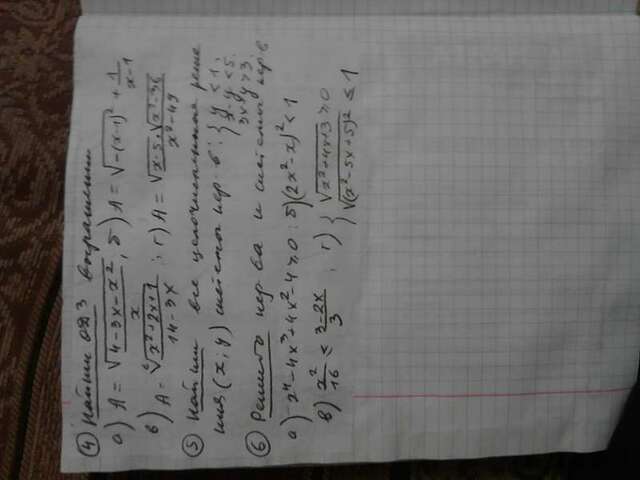 ④ Найти ОДЗ выражений
а) A = √(4-3x-x²)/x ; б) A = √(-(x-1)²) + 1/(x-1)
в) A = ⁶√(x²+2x+1)/(14-3x) ; г) A = √(x-5)·√(x²-36)/(x²-49)
⑤ Найти все целочисленные реше
ния (x; y) системы нер-в: { y < 1; x-y < 5; 3x+2y > 3.
⑥ Решить нер-ва и системы нер-в
а) -x⁴-4x³+4x²-4 ≥ 0 ; б) (2x²-x)² < 1
в) x²/16 < (3-2x)/3 ; г) { √(x²+4x+3) ≥ 0
√(x²-5x+5)² ≤ 1